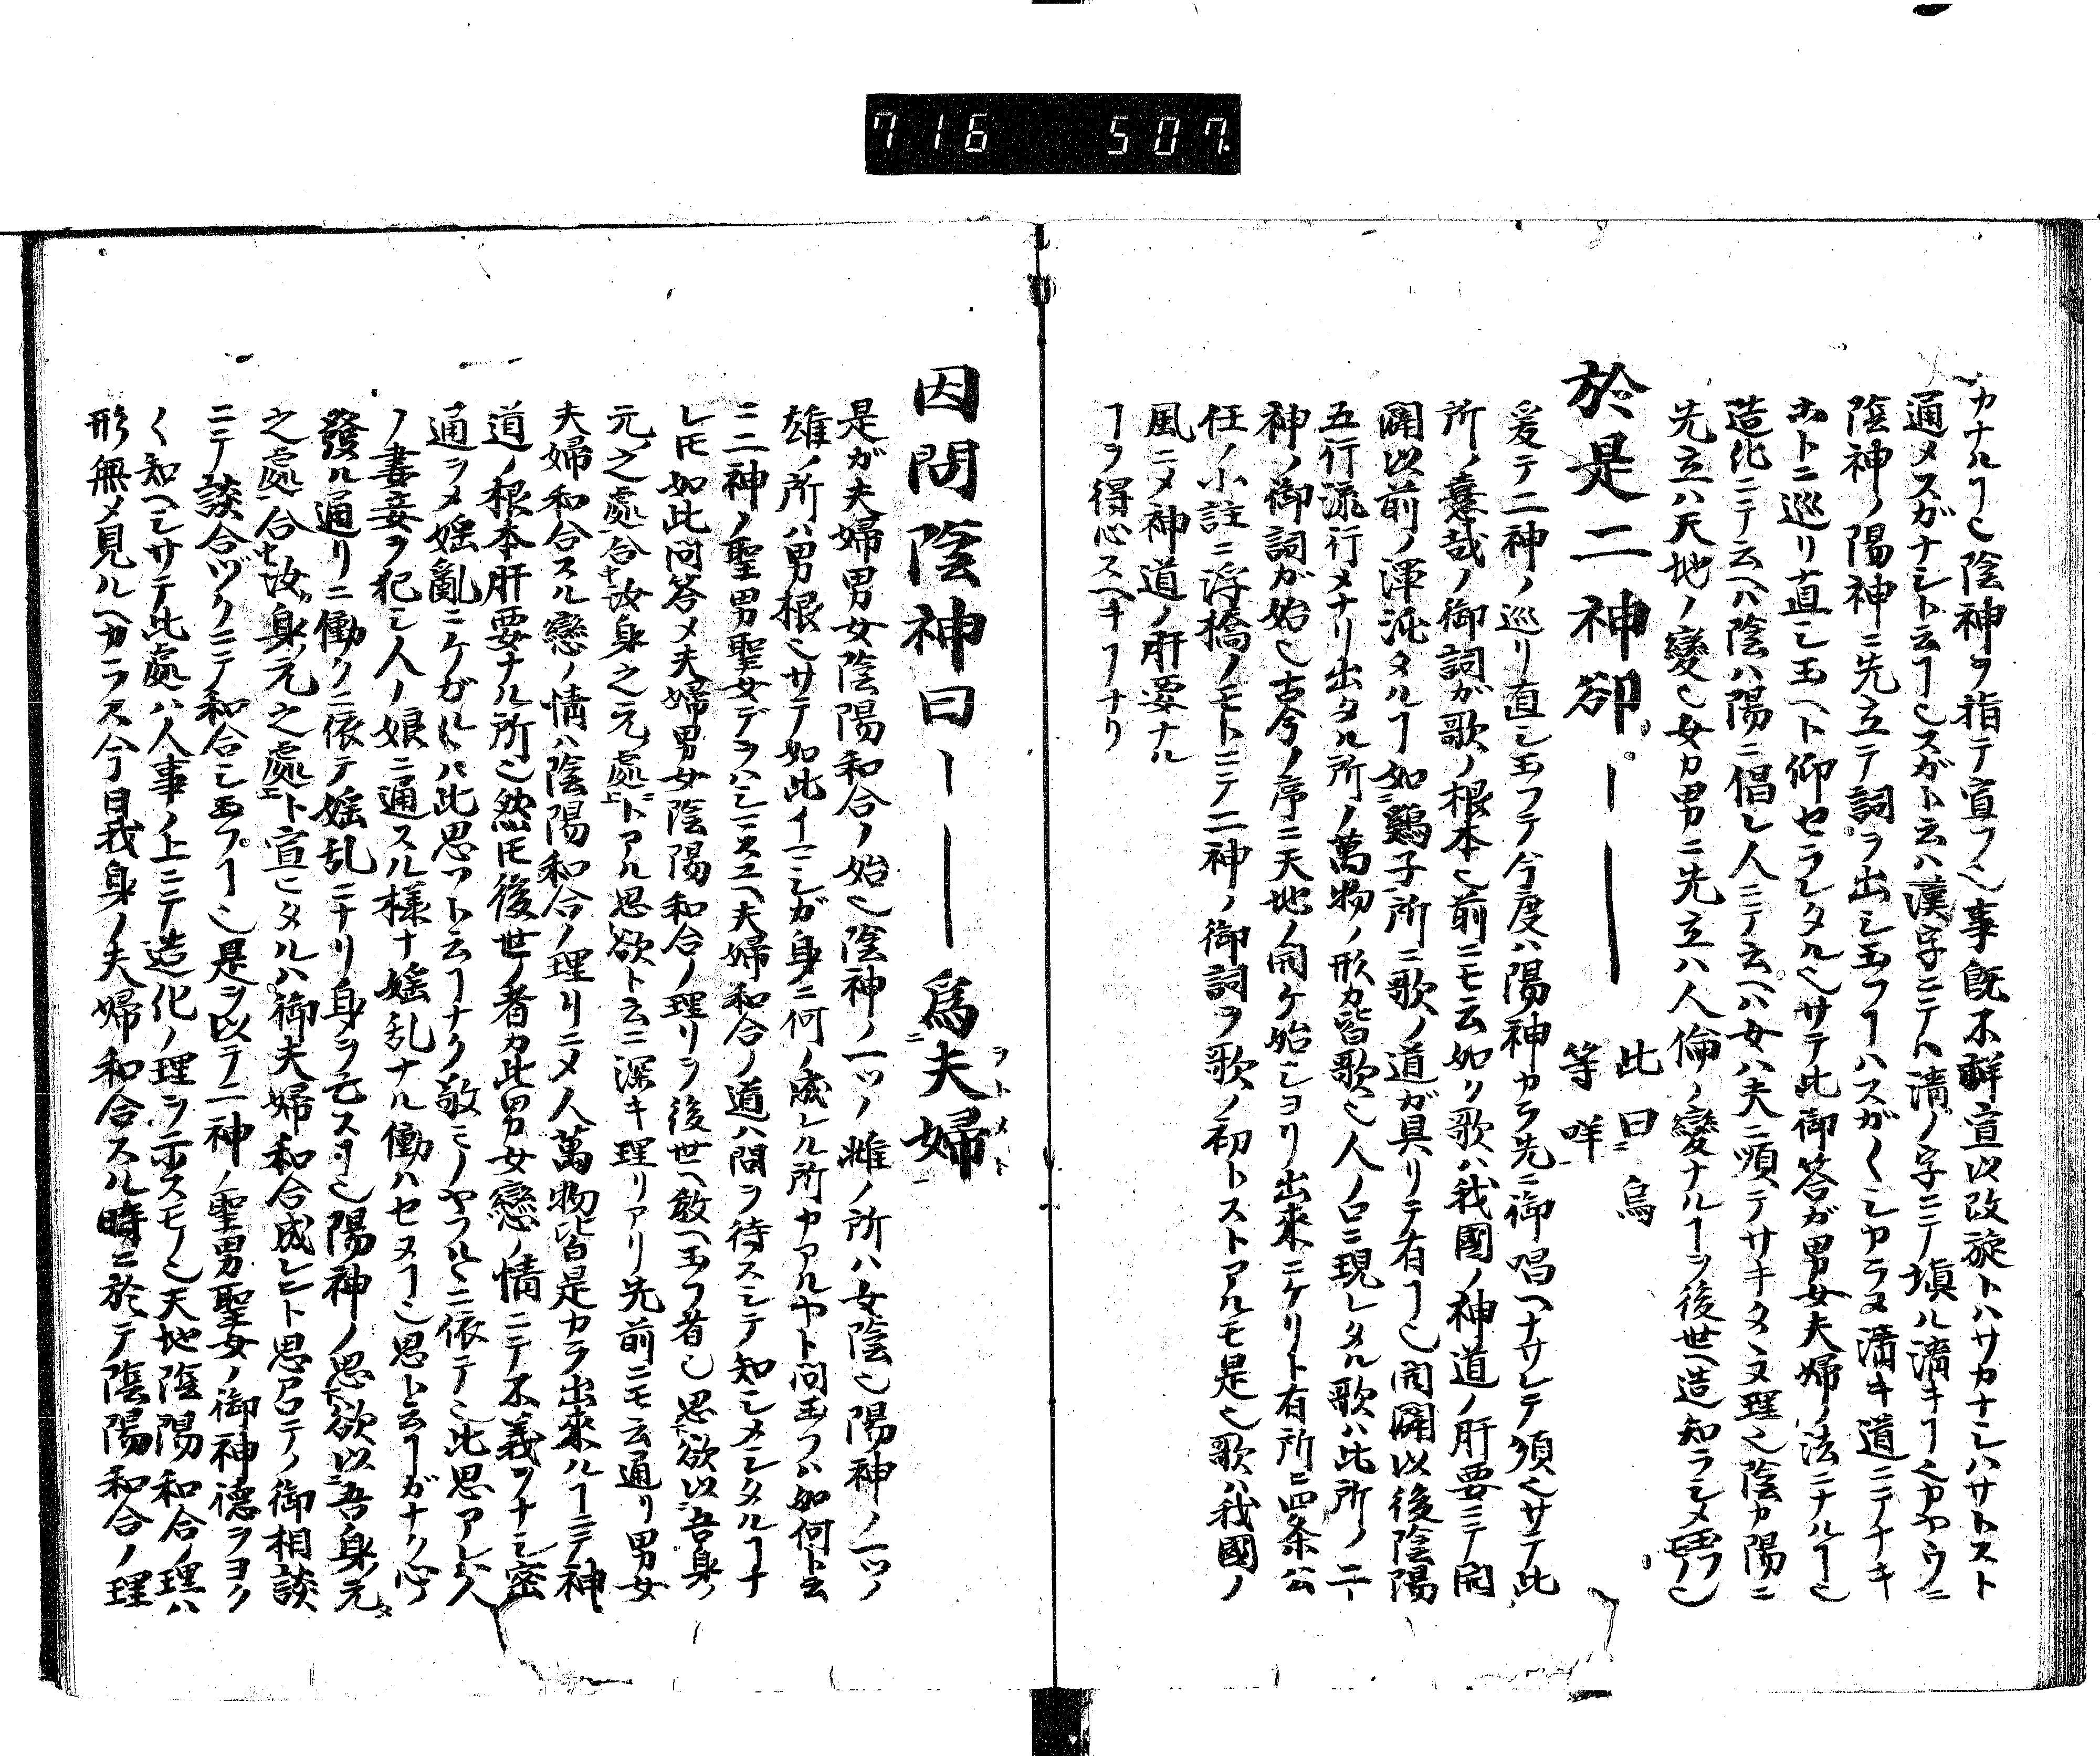 716 507.
カナルヿ乄陰神ヲ指テ宣フ乄事既不祥宜以改旋トハサカナシハサトスト
通メスガナシト云ヿ乄スガト云ハ漢字ニテト清ノ字ニテ塡ル清キヿ乄ヤウニ
陰神ノ陽神ニ先立テ詞ヲ出シ玉フヿハスガ〱シカラヌ清キ道ニテナキ
ホトニ巡リ直シ玉ヘト仰セラレタル乄サテ此御答ガ男女夫婦ノ法ニナルヿ乄
造化ニテ云ヘハ陰ハ陽ニ倡レ人ニテ云ヘハ女ハ夫ニ順テサキタヽヌ理乄陰カ陽ニ
先立ハ天地ノ變乄女カ男ニ先立ハ人倫ノ變ナルヿヲ後世ヘ造知ラシメ玉フモノ乄
於是二神卻。ー―― 此曰烏等咩
爰テ二神ノ巡リ直シ玉フテ今度ハ陽神カラ先ニ御唱ヘナサレテ須乄サテ此
所ノ憙哉ノ御詞ガ歌ノ根本乄前ニモ云如ク歌ハ我國ノ神道ノ肝要ニテ開
闢以前ノ渾沌タルヿ如鷄子所ニ歌ノ道ガ具リテ有ヿ乄開闢以後陰陽
五行流行メナリ出タル所ノ萬物ノ形カ皆歌乄人ノ口ニ現レタル歌ハ此所ノ二
神ノ御詞ガ始乄古今ノ序ニ天地ノ開ケ始シヨリ出來ニケリト有所ニ四条公
任ノ小註ニ浮橋ノモトニテ二神ノ御詞ヲ歌ノ初トストアルモ是乄歌ハ我國ノ
風ニメ神道ノ肝要ナル
ヿヲ得心スヘキヿナリ
因問陰神曰ー――爲ニ夫婦ヲトメト
是ガ夫婦男女陰陽和合ノ始乄陰神ノ一ツノ雌ノ所ハ女陰乄陽神ノ一ツノ
雄ノ所ハ男根乄サテ如此イマシガ身ニ何ノ成レル所カアルヤト問玉フハ如何ト云
ニ二神ノ聖男聖女デヲハシマスユヘ夫婦和合ノ道ハ問ヲ待スシテ知シメシタルヿナ
レ𪜈如此問答メ夫婦男女陰陽和合ノ理リヲ後世ヘ教ヘ玉フ者乄思欲以吾身ノ
元之處合汝身之元處トアル思欲ト云ニ深キ理リアリ先前ニモ云通リ男女
夫婦和合スル戀ノ情ハ陰陽和合ノ理リニメ人萬物皆是カラ出來ルヿニテ神
道ノ根本肝要ナル所乄然𪜈後世ノ者カ此男女戀ノ情ニテ不義ヲナシ密
通ヲメ婬亂ニケガルヽハ此思フト云ヿナク敬ミノヤフルヽニ依テ乄此思アレハ人
ノ妻妾ヲ犯シ人ノ娘ニ通スル様ナ婬乱ナル働ハセヌヿ乄思ト云ヿガナク心ノ
發ル通リニ働クニ依テ婬乱ニナリ身ヲ亡スヿ乄陽神ノ思欲以吾身元
之處合汝身元之處ト宣ヒタルハ御夫婦和合成レント思召テノ御相談
ニテ談合ヅクニテ和合シ玉フヿ乄是ヲ以テ二神ノ聖男聖女ノ御神德ヲヨク
〱知ヘシサテ此處ハ人事ノ上ニテ造化ノ理ヲ示スモノ乄天地陰陽和合ノ理ハ
形無メ見ルヘカラス今日我身ノ夫婦和合スル時ニ於テ陰陽和合ノ理